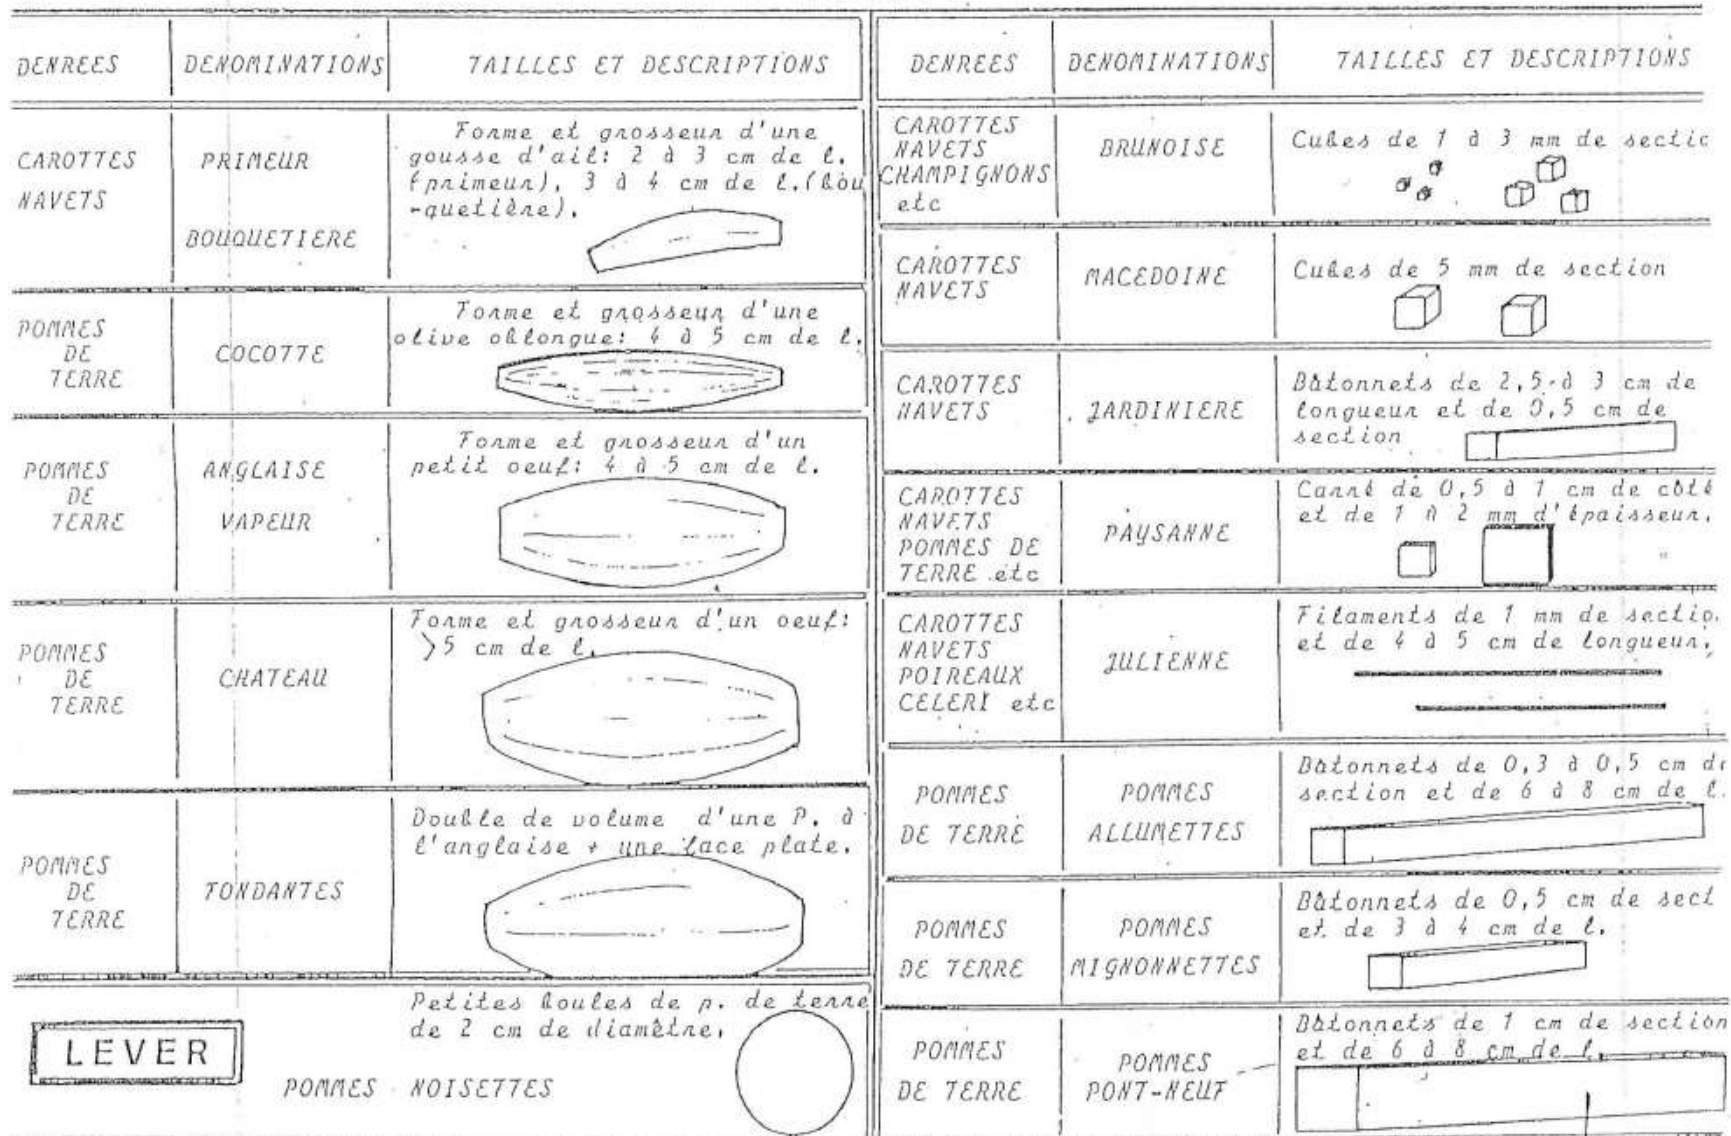 DENREES
DENOMINATIONS
TAILLES ET DESCRIPTIONS
CAROTTES
NAVETS
PRIMEUR
BOUQUETIERE
Forme et grosseur d'une
gousse d'ail: 2 à 3 cm de l.
(primeur), 3 à 4 cm de l.(bou
-quetière).
POMMES
DE
TERRE
COCOTTE
Forme et grosseur d'une
olive oblongue: 4 à 5 cm de l.
POMMES
DE
TERRE
ANGLAISE
VAPEUR
Forme et grosseur d'un
petit oeuf: 4 à 5 cm de l.
POMMES
DE
TERRE
CHATEAU
Forme et grosseur d'un oeuf:
>5 cm de l.
POMMES
DE
TERRE
FONDANTES
Double de volume d'une P. à
l'anglaise + une face plate.
LEVER
POMMES NOISETTES
Petites boules de p. de terre
de 2 cm de diamètre.
DENREES
DENOMINATIONS
TAILLES ET DESCRIPTIONS
CAROTTES
NAVETS
CHAMPIGNONS
etc
BRUNOISE
Cubes de 1 à 3 mm de sectio
CAROTTES
NAVETS
MACEDOINE
Cubes de 5 mm de section
CAROTTES
NAVETS
JARDINIERE
Bâtonnets de 2,5 à 3 cm de
longueur et de 0,5 cm de
section
CAROTTES
NAVETS
POMMES DE
TERRE etc
PAYSANNE
Carré de 0,5 à 1 cm de côté
et de 1 à 2 mm d'épaisseur.
CAROTTES
NAVETS
POIREAUX
CELERI etc
JULIENNE
Filaments de 1 mm de sectio.
et de 4 à 5 cm de longueur.
POMMES
DE TERRE
POMMES
ALLUMETTES
Bâtonnets de 0,3 à 0,5 cm de
section et de 6 à 8 cm de l.
POMMES
DE TERRE
POMMES
MIGNONNETTES
Bâtonnets de 0,5 cm de sect
et de 3 à 4 cm de l.
POMMES
DE TERRE
POMMES
PONT-NEUF
Bâtonnets de 1 cm de section
et de 6 à 8 cm de l.